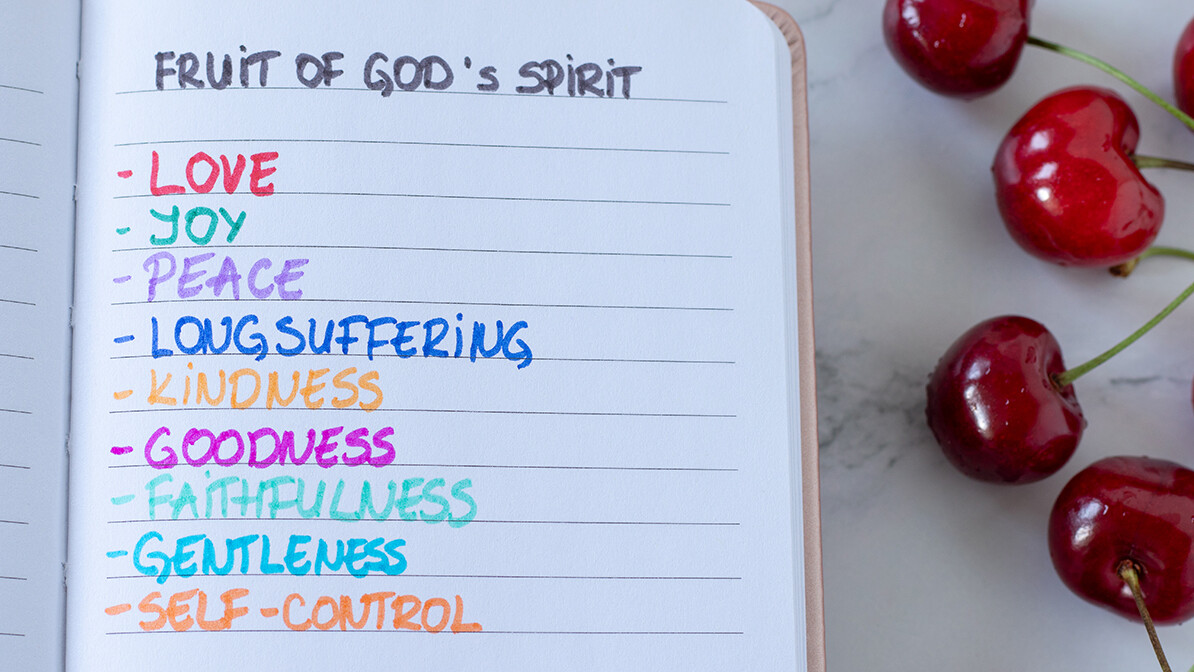 FRUiT OF GOD's SPiRiT
- LOVE
- JOY
- PEACE
- LONGSUFFERiNG
- KiNDNESS
- GOODNESS
- FAiTHFULNESS
- GENTLENESS
- SELF-CONTROL